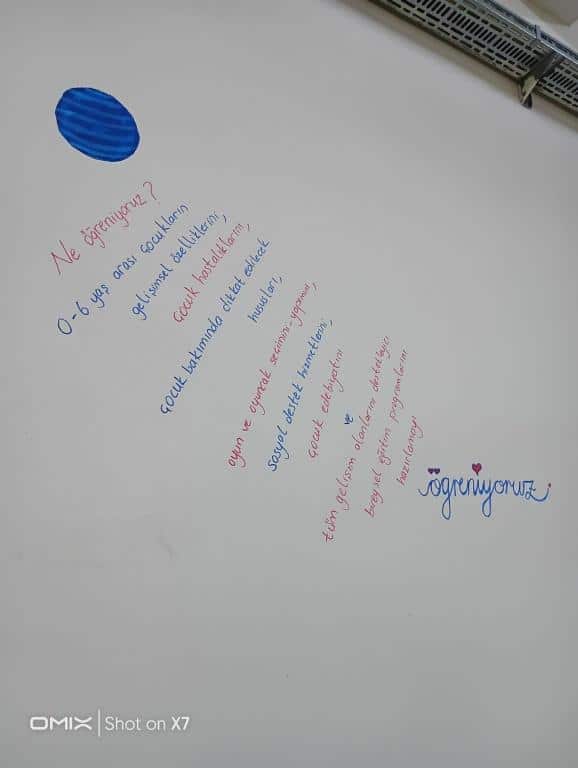 Ne öğreniyoruz?
0-6 yaş arası çocukların
gelişimsel özelliklerini,
çocuk hastalıklarını,
çocuk bakımında dikkat edilecek
hususları,
oyun ve oyuncak seçimini-yapımını,
sosyal destek hizmetlerini,
çocuk edebiyatını
ve
tüm gelişim alanlarını destekleyici
bireysel eğitim programlarını
hazırlamayı
öğreniyoruz.
OMIX | Shot on X7